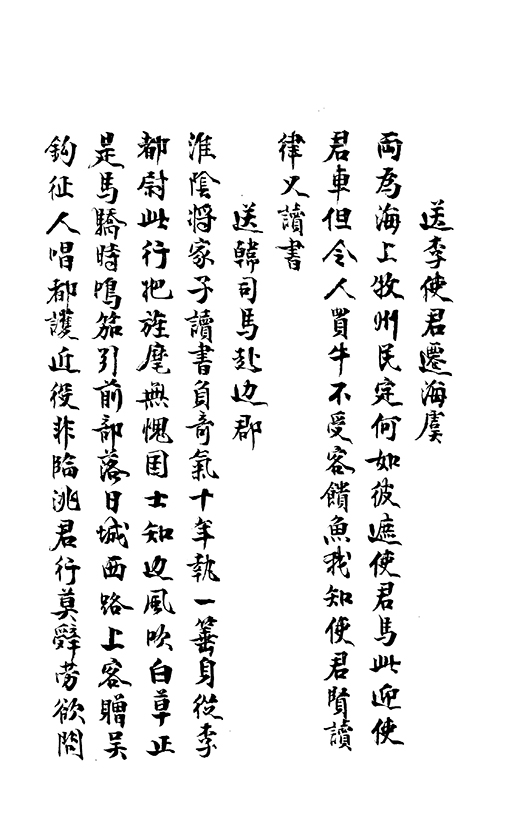 送李使君遷海虞
両為海上牧州民定何如彼遮使君馬此迎使
君車但令人買牛不受客饋魚我知使君賢讀
律又讀書
送韓司馬赴边郡
淮陰將家子讀書負奇氣十年執一箠身從李
都尉此行把旌麾無愧国士知边風吹白草正
是馬驕時鳴笳引前部落日城西路上客贈吴
鈎征人唱都護近役非臨洮君行莫辭劳欲問